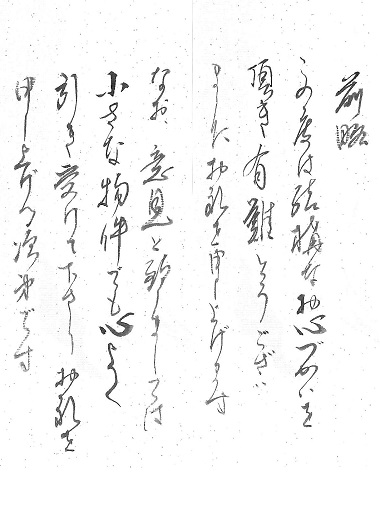 前略
この度は結構なお心づかいを
頂き有難とうござい
ました お礼を申し上げます
なお、意見と致しましては
小さな物件でも心よく
引き受けて下さり お礼を
申し上げる次第です